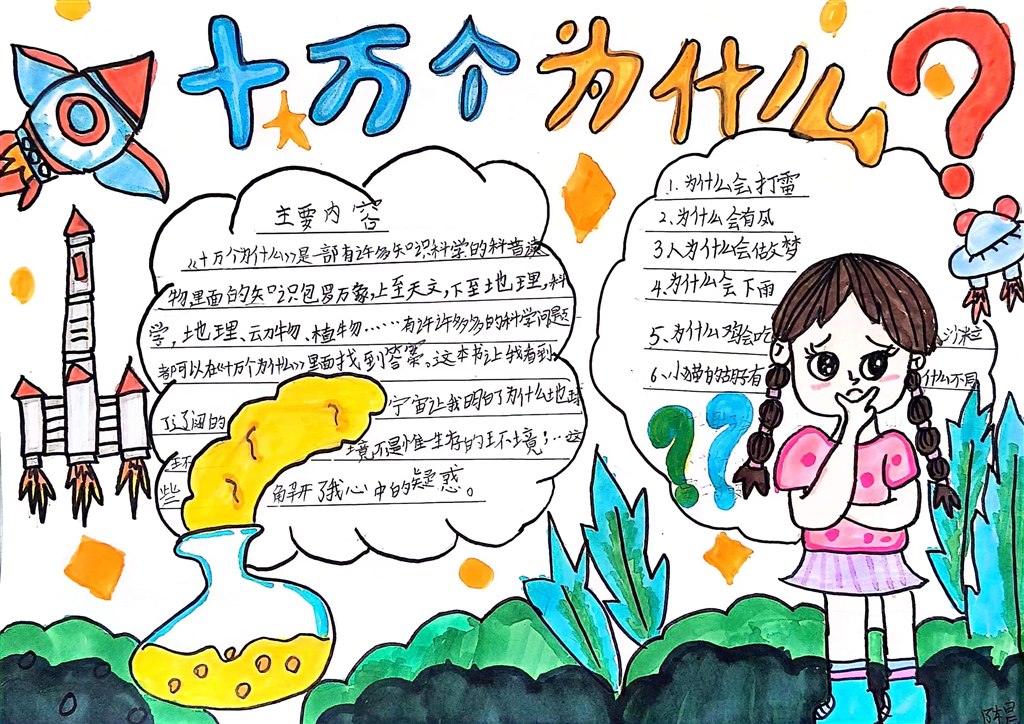 十万个为什么?
主要内容
《十万个为什么》是一部有许多知识科学的科普读
物里面的知识包罗万象,上至天文,下至地理,科
学,地理、动物、植物……有许许多多的科学问题
都可以在《十万个为什么》里面找到答案。这本书让我看到
了辽阔的 宇宙让我明白了为什么地球
环 境不是惟一生存的环境;…这
些 解开了我心中的疑惑。
1.为什么会打雷
2.为什么会有风
3人为什么会做梦
4.为什么会下雨
5、为什么鸡会吃 沙粒
6、小猫的胡子有 什么不同
??